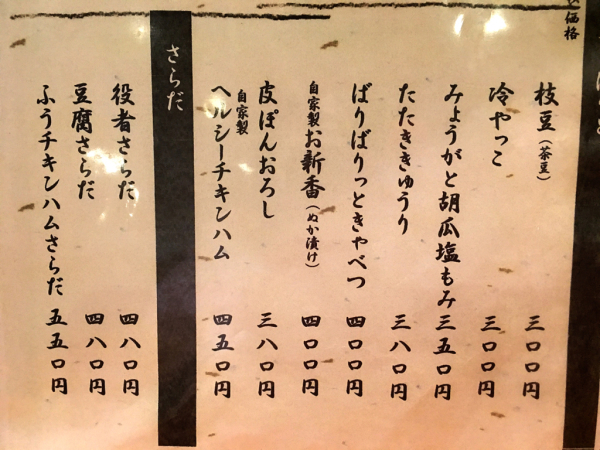 価格
枝豆(茶豆) 三〇〇円
冷やっこ 三〇〇円
みょうがと胡瓜塩もみ 三五〇円
たたききゅうり 三八〇円
ぱりぱりっときゃべつ 四〇〇円
自家製お新香(ぬか漬け) 四〇〇円
皮ぽんおろし 三八〇円
自家製ヘルシーチキンハム 四五〇円
さらだ
役者さらだ 四八〇円
豆腐さらだ 四八〇円
ふうチキンハムさらだ 五五〇円